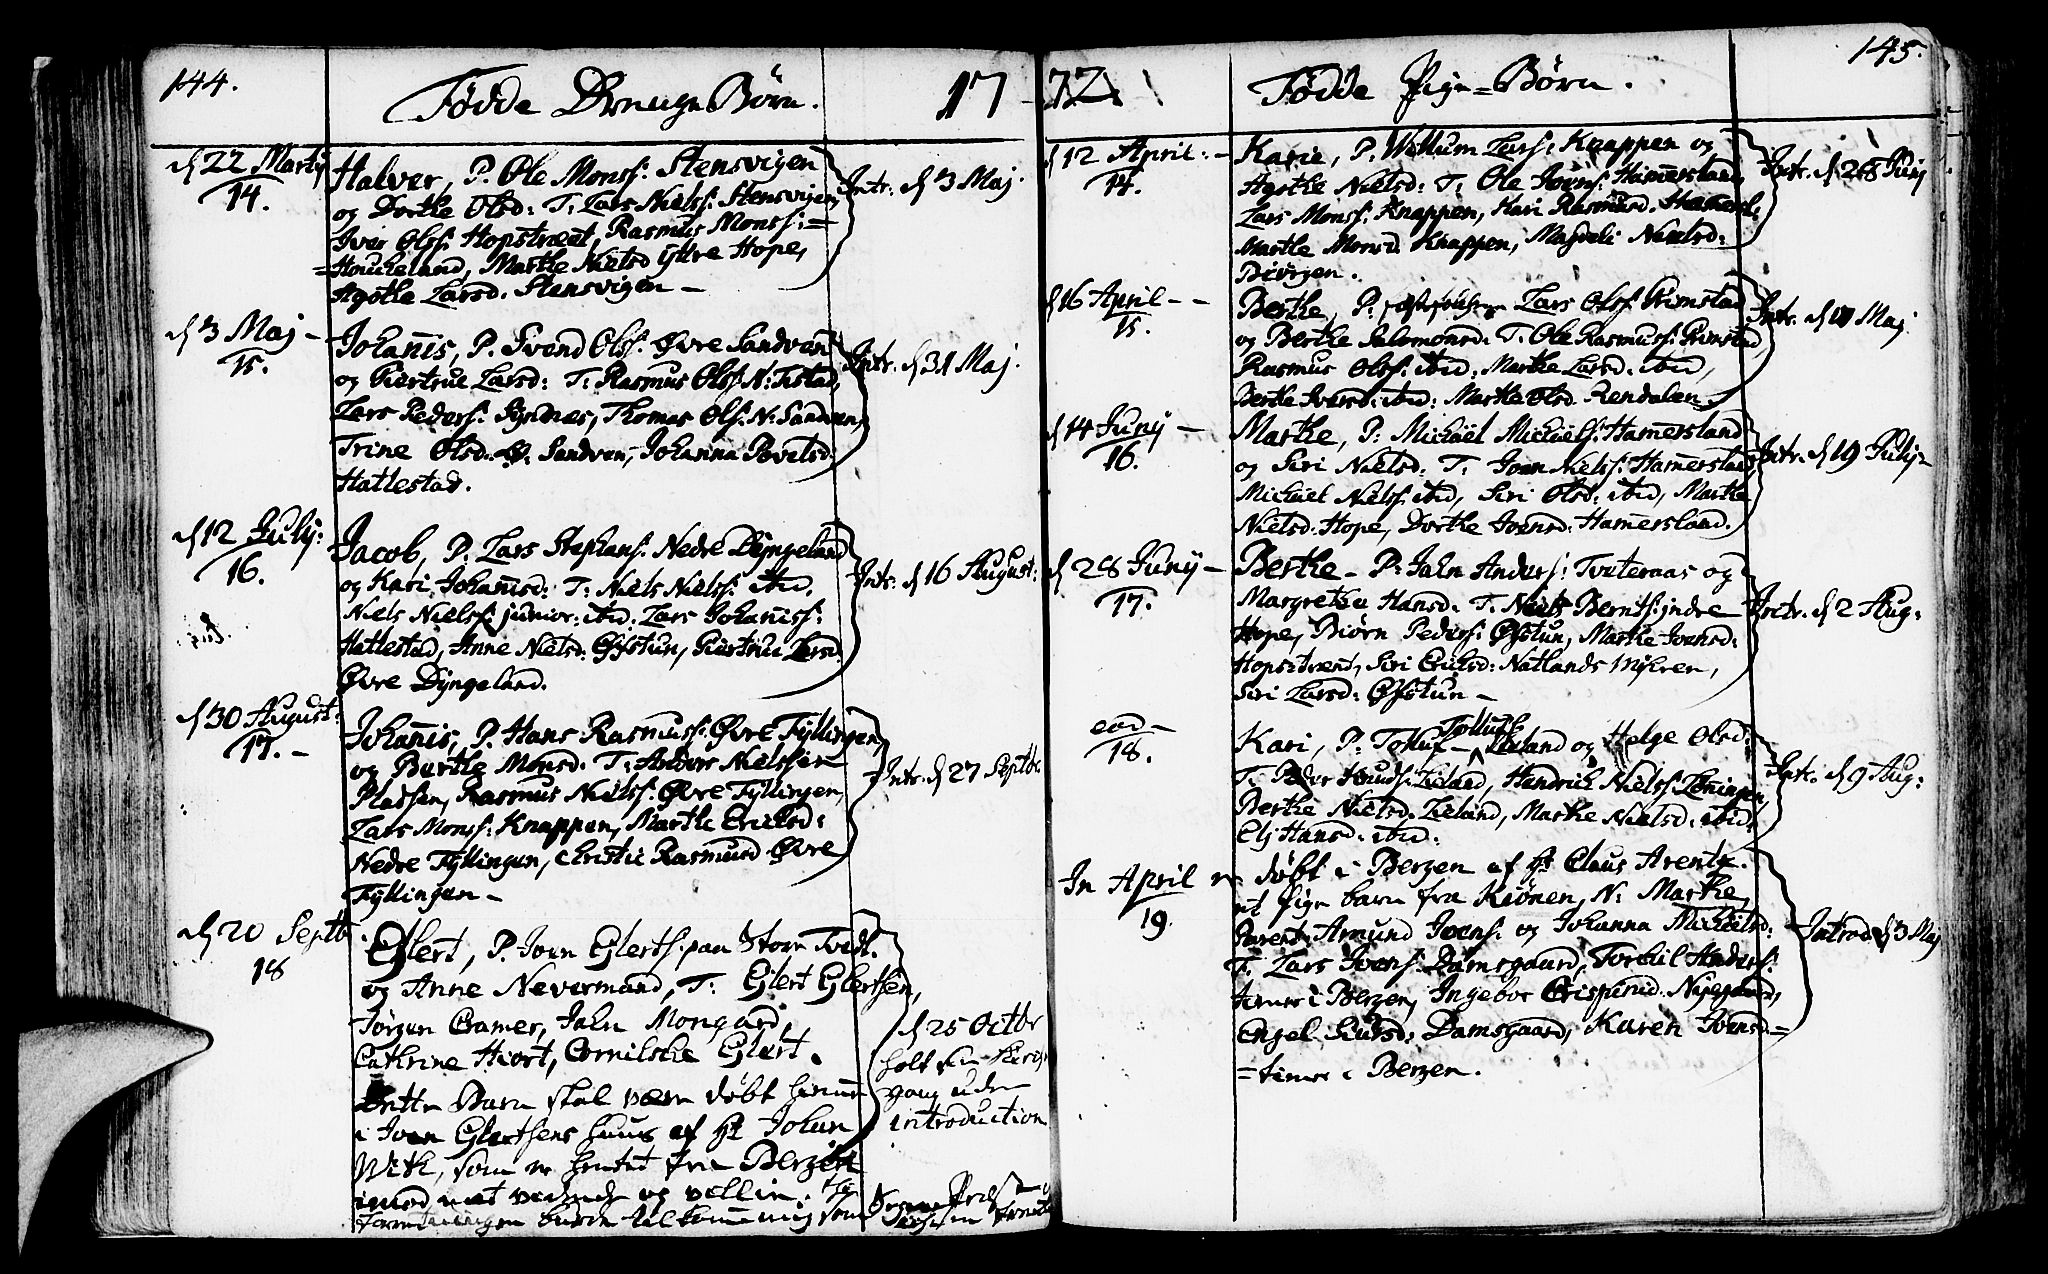 144.
Fødde Drenge Børn.
17
d 22 Martij
14.
Halver, P. Ole Monss: Stensvigen
og Dorthe Olsd: T: Lars Nielss: Stensvigen,
Iver Olss: Hopstræet, Rasmus Monss:=
=Houckeland, Marthe Nielsd ijttre Hope,
Agothe Larsd. Stensvigen –
Intr. d 3 Maj.
d 3 Maj –
15.
Johannis, P. Svend Olss. Øvre Sandven
og Giertrue Larsd: T: Rasmus Olss N: Tistad,
Lars Pederss: Syndnes, Thomas Olss. N: Sandven,
Trine Olsd. Ø: Sandven, Johanna Povelsd:
Hattestad.
Intr. d 31 Maj.
d 12 Julij:
16.
Jacob, P: Lars Stephans: Nedre Dyngeland
og Kari Johannisd: T: Niels Nielss: ibid,
Niels Nielss: junior: ibid: Lars Johaniss:
Hattestad, Anne Nielsd: Øfstun, Giertrue Larsd.
Øvre Dyngeland.
Intr. d 16 August:
d 30 August:
17. –
Johannis, P. Hans Rasmuss: Øvre Fyllingen,
og Berthe Monsd. T: Anders Nielssen
Pladsen, Rasmus Nielss: Øvre Fyllingen,
Lars Monss: Knappen, Marthe Ericksd:
Nedre Fyllingen, Christie Rasmusd Øvre
Fyllingen –
Intr. d 27 Septbr
d 20 Septb
18
Eglert, P. Joen Eglertss: paa Store Tvedt
og Anne Nevermand, T: Eglert Eglertsen,
Jørgen Cramer, John Mongard,
Cathrine Hiort, Cornilske Eglert.
Dette Barn skal være døbt hiemme
i Joen Eglertsens huus af Hr Johan
Weth, som er hentet fra Bergen
imod mit vidende og villie.
d 25 Octbr
holt sin Kirke
gang uden
introduction
72
145.
Fødde Pige=Børn.
d 12 April: –
14.
Karie, P: Willum Larss: Knappen og
Agothe Nielsd: T: Ole Joens: Hammersland,
Lars Monss: Knappen, Kari Rasmusd. Hamersl:
Marthe Monsd. Knappen, Magdeli Nielsd:
Biørgen.
Intr. d 28 Junij
d 16 April – –
15.
Berthe, P: Lars Olss Grimstad
og Berthe Salomonsd. T: Ole Rasmuss: Grimstad,
Rasmus Olss: ibid: Marthe Larsd. ibid,
Berthe Iversd: ibid: Marthe Olsd. Rendalen.
Intr. d Maj
d 14 Junij –
16.
Marthe, P: Michael Michaels: Hamersland
og Siri Nielsd: T: Joen Nielss: Hamersland,
Michael Nielss: ibid, Siri Olsd: ibid, Marthe
Nielsd: Hope, Dorthe Joensd: Hamersland.
Intr. d 19 Julij
d 28 Junij –
17.
Berthe – P: John Anders: Tveteraas og
Margrethe Hansd. T: Niels Berntss: jndre
Hope, Biørn Peders: Øfstun, Marthe Ivensd:
Hopstræet, Siri Ericksd: Natlands Mÿhren,
Siri Larsd: Øfstun –
Intr. d 2 Aug:
eod –
18.
Kari, P: Tolluf – Tollufs Lieland og Helge Olsd:
T. Peder Knuds: Lieland, Hendrich Nielss: Lønningen,
Berthe Nielsd. Lieland, Marthe Nielsd: ibid,
Elj Hansd: ibid:
Intr. d 9 Aug:
In April er
19.
døbt i Bergen af Hr Claus Arentz.
et Pige barn fra Kiønen, N: Marthe,
Parent: Amund Joens: og Johanna Michelsd:
T. Lars Ivers: Damsgaard, Torkil Anderss:
tiener i Bergen, Ingebor Crispinsd. Nyegaard,
Engel Siursd: Damsgaard, Karen Ivensd.=
=tiener i Bergen.
Introd. d 3 Maj